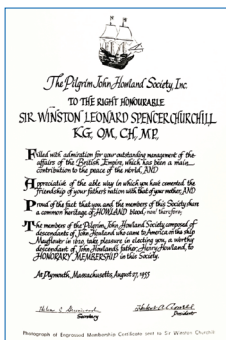 The Pilgrim John Howland Society, Inc.
TO THE RIGHT HONOURABLE
SIR WINSTON LEONARD SPENCER CHURCHILL
K.G., O.M., C.H., M.P.
Filled with admiration for your outstanding management of the
affairs of the British Empire, which has been a main
contribution to the peace of the world, AND
Appreciative of the able way in which you have cemented the
friendship of your father's nation with that of your mother, AND
Proud of the fact that you and the members of this Society share
a common heritage of HOWLAND blood, now therefore,
The members of the Pilgrim John Howland Society composed of
descendants of John Howland who came to America on the ship
Mayflower in 1620, take pleasure in electing you, a worthy
descendant of John Howland's father, Henry Howland, to
HONORARY MEMBERSHIP in this Society.
At Plymouth, Massachusetts, August 27, 1955
Secretary
President
Photograph of Engrossed Membership Certificate sent to Sir Winston Churchill